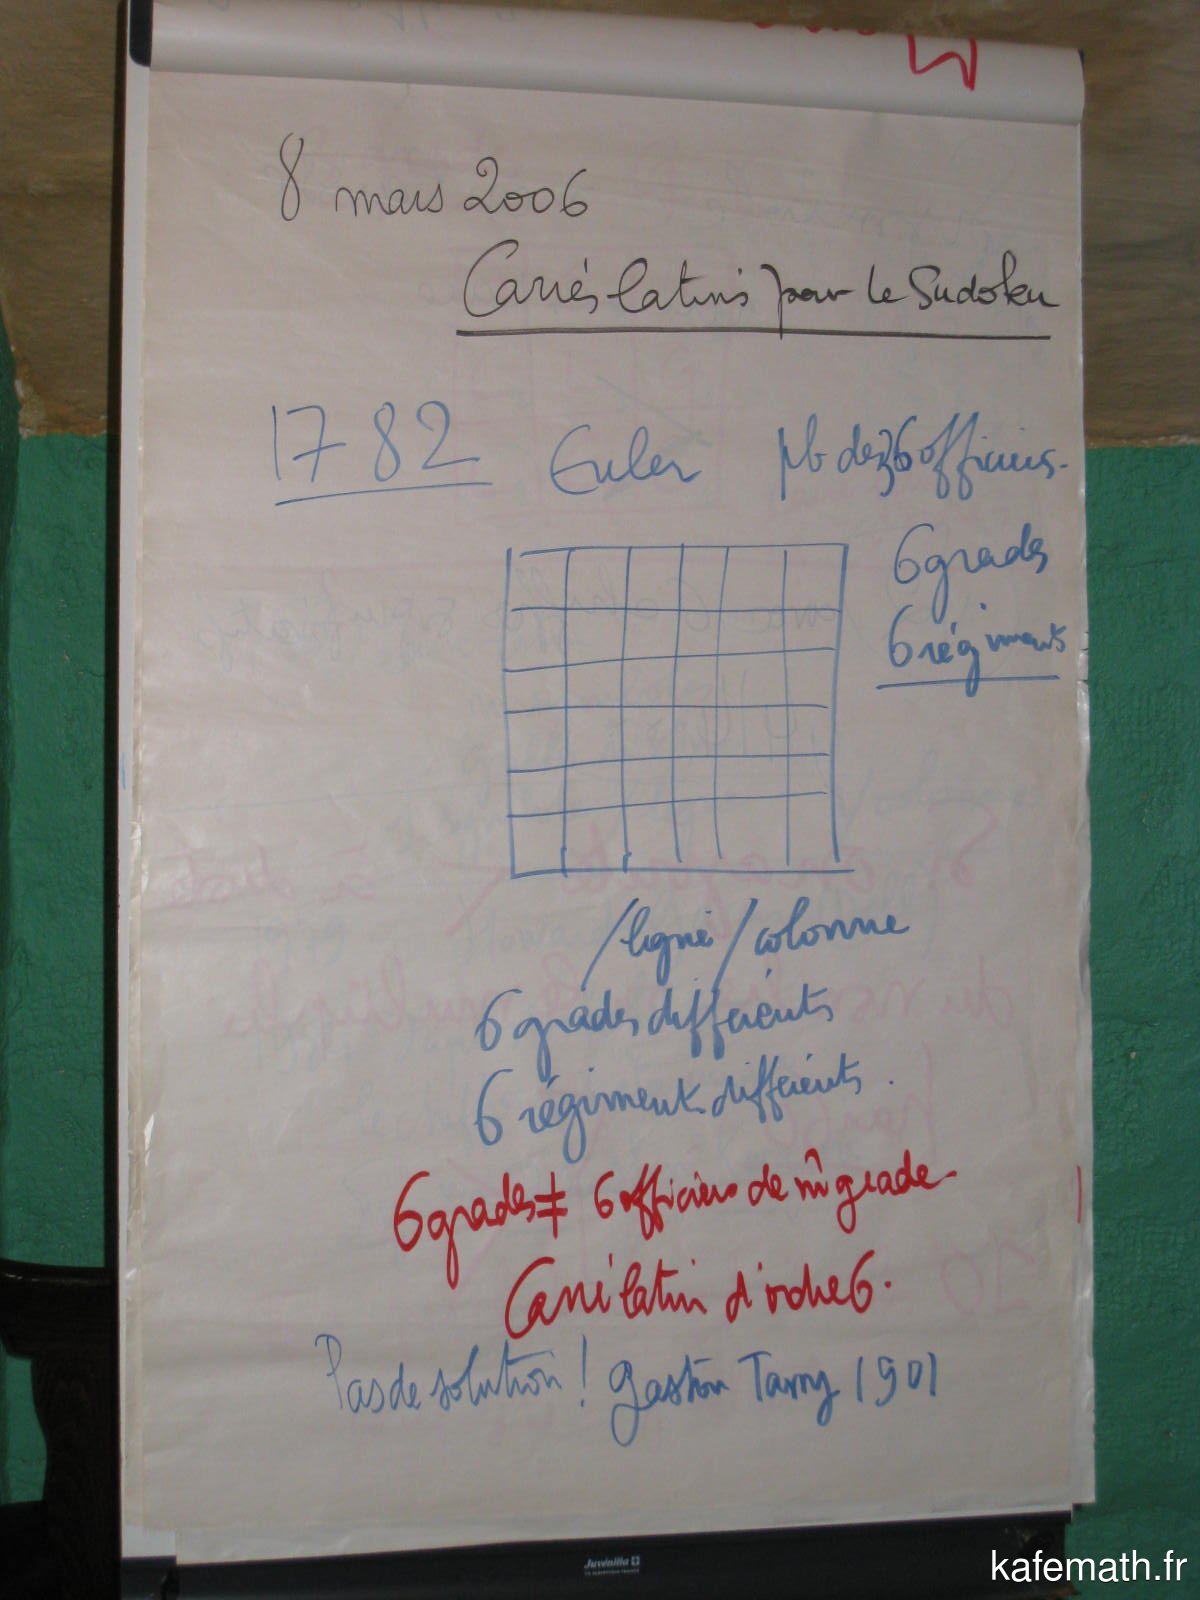 8 mars 2006
Carrés latins pour le Sudoku
1782 Euler pb des 36 officiers.
6 grades
6 régiments
/ligne /colonne
6 grades différents
6 régiments différents.
6 grades ≠ 6 officiers de m̂ grade.
Carré latin d'ordre 6.
Pas de solution ! Gaston Tarry 1901
Juvénilia
kafemath.fr